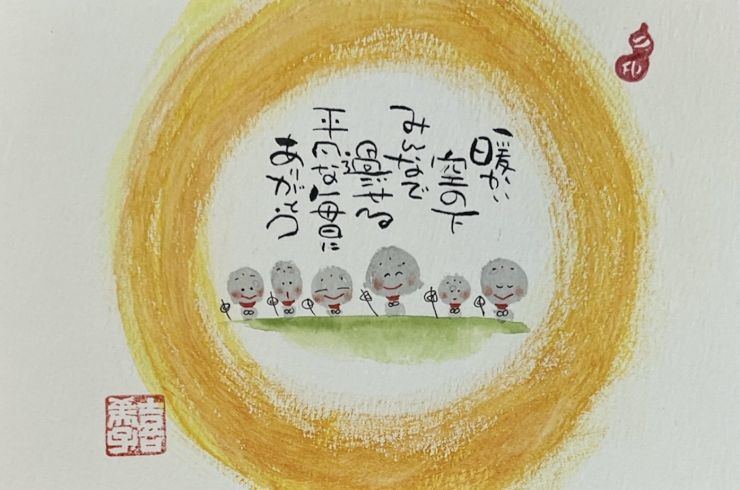 暖かい
空の下
みんなで
過ごせる
平凡な毎日に
ありがとう